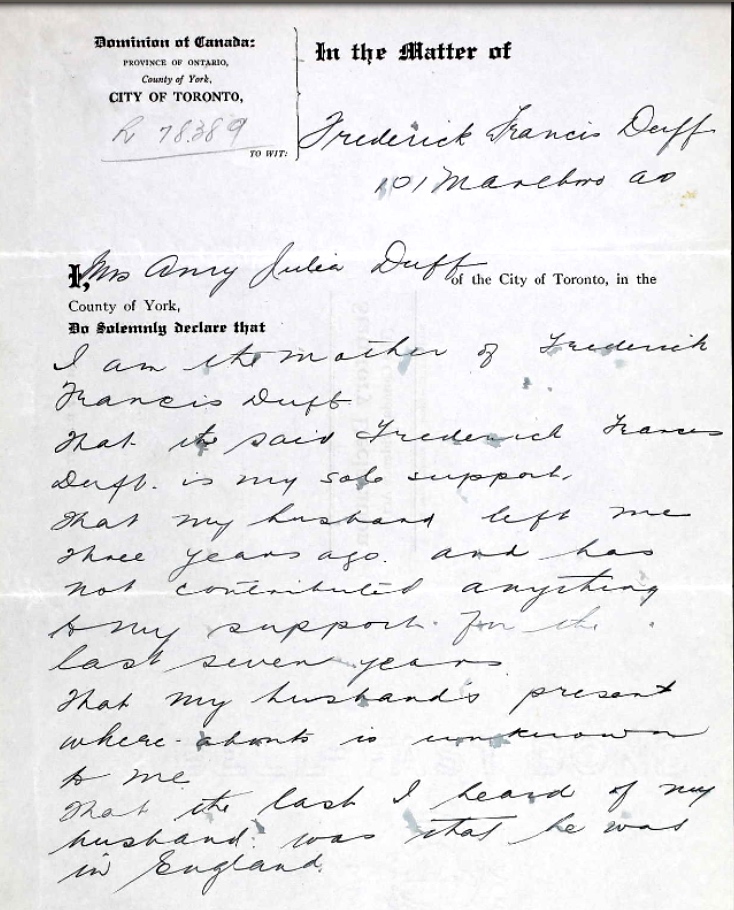 Dominion of Canada:
PROVINCE OF ONTARIO,
County of York,
CITY OF TORONTO,
R 78389
TO WIT:
In the Matter of
Frederick Francis Duff
101 Marlboro av
I, Mrs Amy Julia Duff of the City of Toronto, in the
County of York,
Do Solemnly declare that
I am the mother of Frederick
Francis Duff
That the said Frederick Francis
Duff. is my sole support,
That my husband left me
three years ago. and has
not contributed anything
to my support. for the
last seven years
That my husband's present
where-abouts is unknown
to me
That the last I heard of my
husband. was that he was
in England.